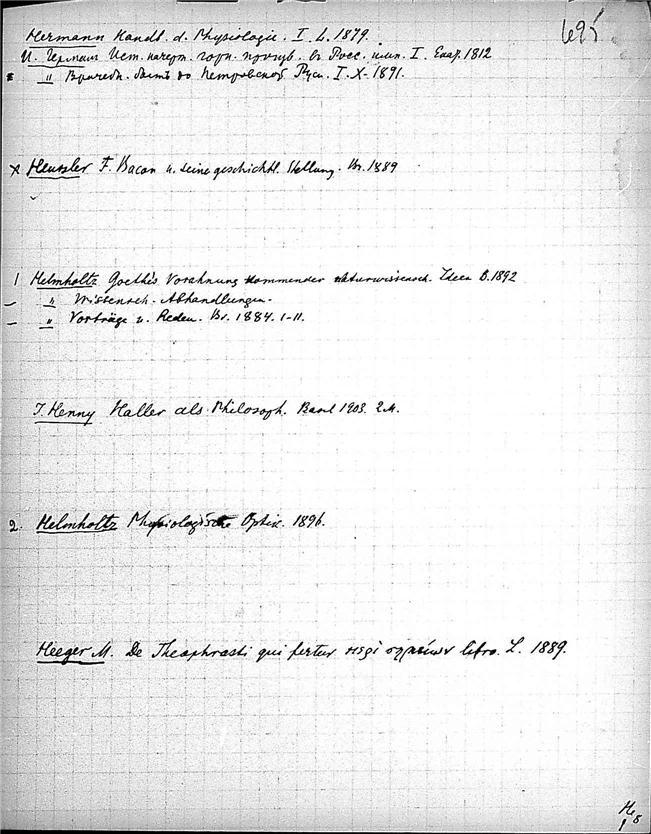 695
Hermann Handb. d. Physiologie. I. L. 1879.
И. Германн Ист. начерт. горн. произв. въ Росс. имп. I. Екат. 1812
" Врачебн. бытъ до Петровской Руси. I. Х. 1891.
x Heussler F. Bacon u. seine geschichtl. Stellung. Br. 1889
1 Helmholtz Goethes Vorahnung kommender naturwissensch. Ideen B. 1892
– " Wissensch. Abhandlungen.
– " Vorträge u. Reden. Br. 1884. I–II.
J. Henny Haller als Philosoph. Basel 1903. 2 M.
2. Helmholtz Physiologische Optik. 1896.
Heeger M. De Theophrasti qui fertur περὶ σημείων libro. L. 1889.
He